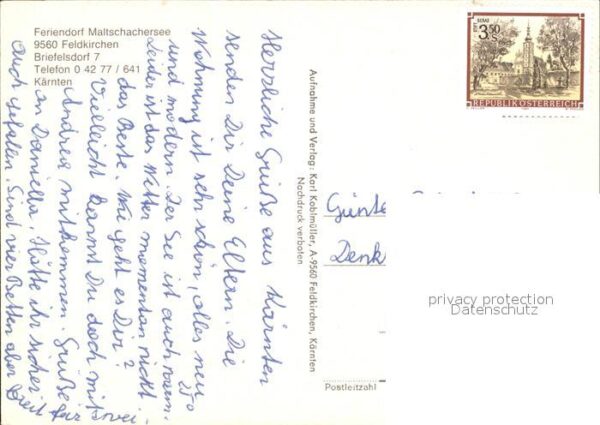 Feriendorf Maltschachersee
9560 Feldkirchen
Briefelsdorf 7
Telefon 0 42 77 / 641
Kärnten
Herzliche Grüße aus Kärnten
senden Dir Deine Eltern. Die
Wohnung ist sehr schön, alles neu
und modern. Der See ist auch warm. 22°
Leider ist das Wetter momentan nicht
das Beste. Wie geht es Dir?
Vielleicht kannst Du doch mit
Andrea mitkommen. Grüße
an Daniella. Hätte ihr sicher
auch gefallen. Sind vier Betten aber
Zeit für zwei.
Aufnahme und Verlag: Karl Koblmüller, A-9560 Feldkirchen, Kärnten
Nachdruck verboten
3.50
S
REPUBLIK ÖSTERREICH
Günte
Denk
privacy protection
Datenschutz
Postleitzahl